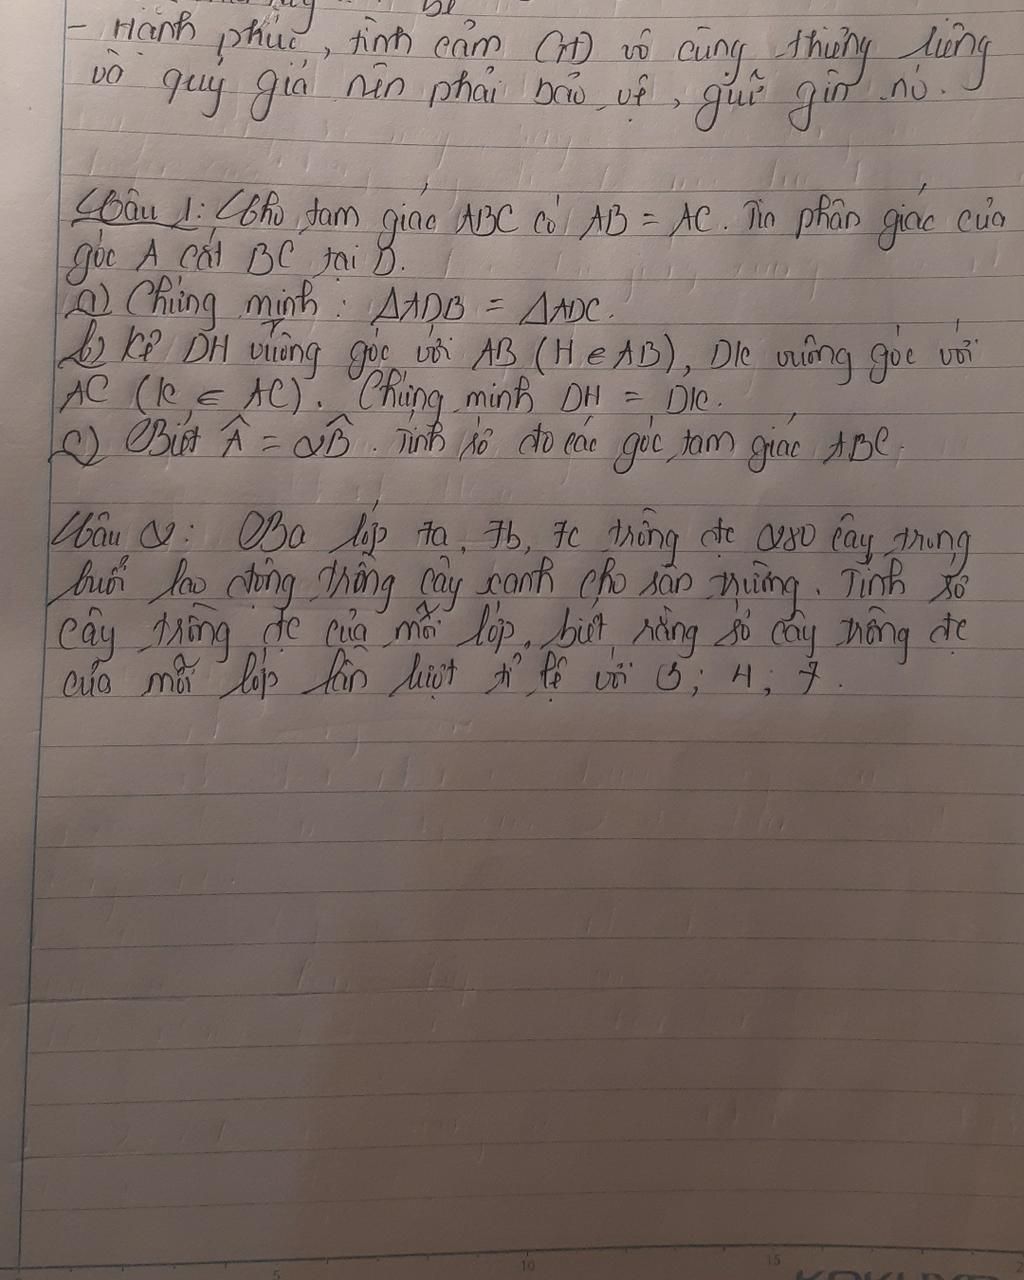 - Hạnh phúc, tình cảm (rt) vô cùng thiêng liêng
và quý giá nên phải bảo vệ, giữ gìn nó.
Câu 1: Cho tam giác ABC có AB = AC. Tia phân giác của
góc A cắt BC tại D.
a) Chứng minh: ΔADB = ΔADC.
b) Kẻ DH vuông góc với AB (H ∈ AB), DK vuông góc với
AC (K ∈ AC). Chứng minh DH = DK.
c) Biết Â = 2B̂. Tính số đo các góc tam giác ABC.
Câu 2: Ba lớp 7a, 7b, 7c trồng đc 280 cây trong
buổi lao động trồng cây xanh cho sân trường. Tính số
cây trồng đc của mỗi lớp, biết rằng số cây trồng đc
của mỗi lớp lần lượt tỉ lệ với 3; 4; 7.
5
10
15